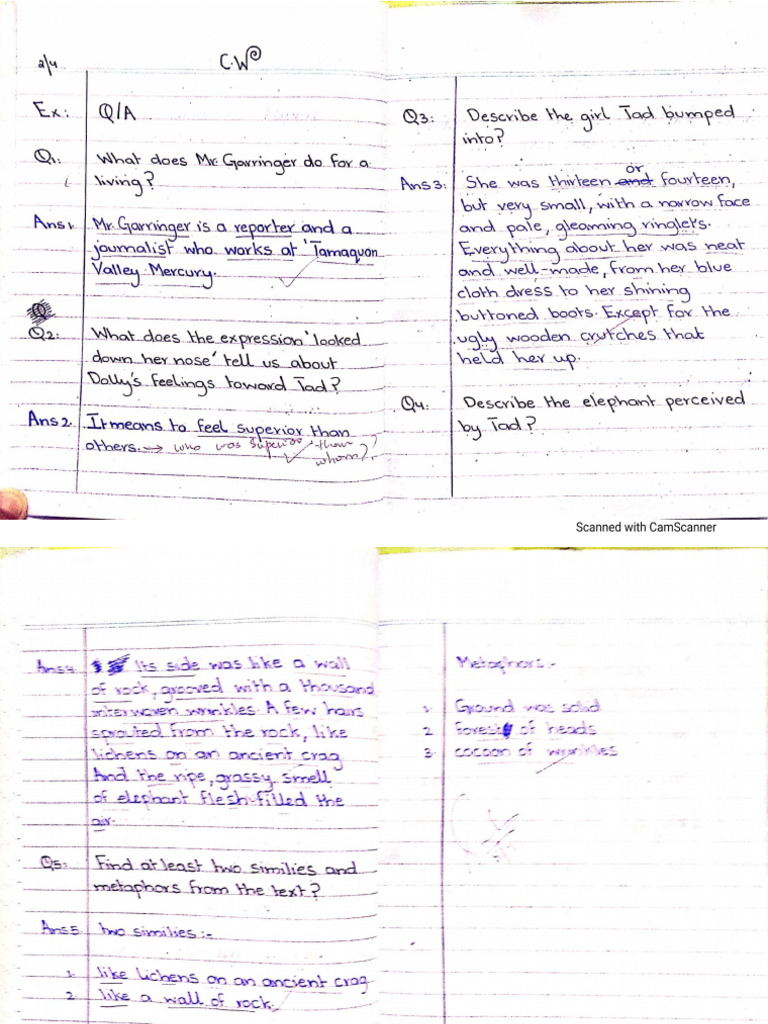 2/4
C.W
Ex: Q/A
Q1: What does Mr. Garringer do for a
living?
Ans1. Mr. Garringer is a reporter and a
journalist who works at 'Tamaquon
Valley Mercury.
Q2: What does the expression 'looked
down her nose' tell us about
Dolly's feelings toward Tad?
Ans2. It means to feel superior than
others. → who was superior than
whom?
Q3: Describe the girl Tad bumped
into?
or
Ans3: She was thirteen and fourteen,
but very small, with a narrow face
and pale, gleaming ringlets.
Everything about her was neat
and well-made, from her blue
cloth dress to her shining
buttoned boots. Except for the
ugly wooden crutches that
held her up.
Q4: Describe the elephant perceived
by Tad?
Scanned with CamScanner
Ans4. Its side was like a wall
of rock, grooved with a thousand
interwoven wrinkles. A few hairs
sprouted from the rock, like
lichens on an ancient crag
And the ripe, grassy smell
of elephant flesh filled the
air.
Q5: Find at least two similies and
metaphors from the text?
Ans5. two similies:-
1. like lichens on an ancient crag
2. like a wall of rock.
Metaphors:-
1. Ground was solid
2 forest of heads
3. cocoon of wrinkles